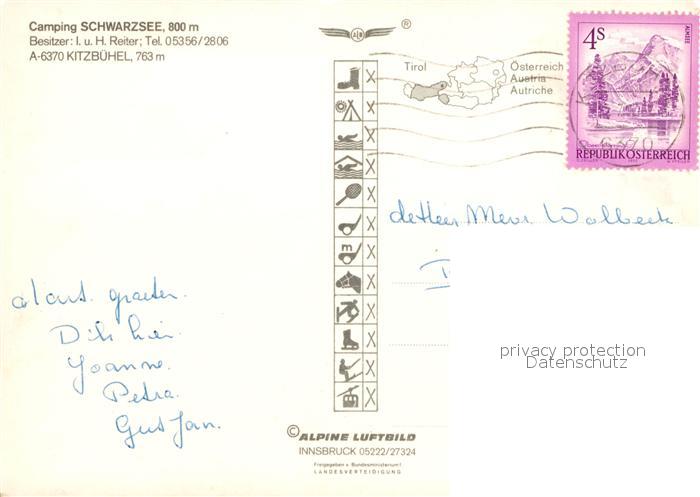 Camping SCHWARZSEE, 800 m
Besitzer: I. u. H. Reiter; Tel. 05356/2806
A-6370 KITZBÜHEL, 763 m
®
Tirol
Österreich
Austria
Autriche
4S
ALMSEE
REPUBLIK ÖSTERREICH
6370
de Heer Mevr Walbeek
m
groeten
Dik
Joanne.
Petra.
Gert Jan.
privacy protection
Datenschutz
© ALPINE LUFTBILD
INNSBRUCK 05222/27324
Freigegeben v. Bundesministerium f.
LANDESVERTEIDIGUNG